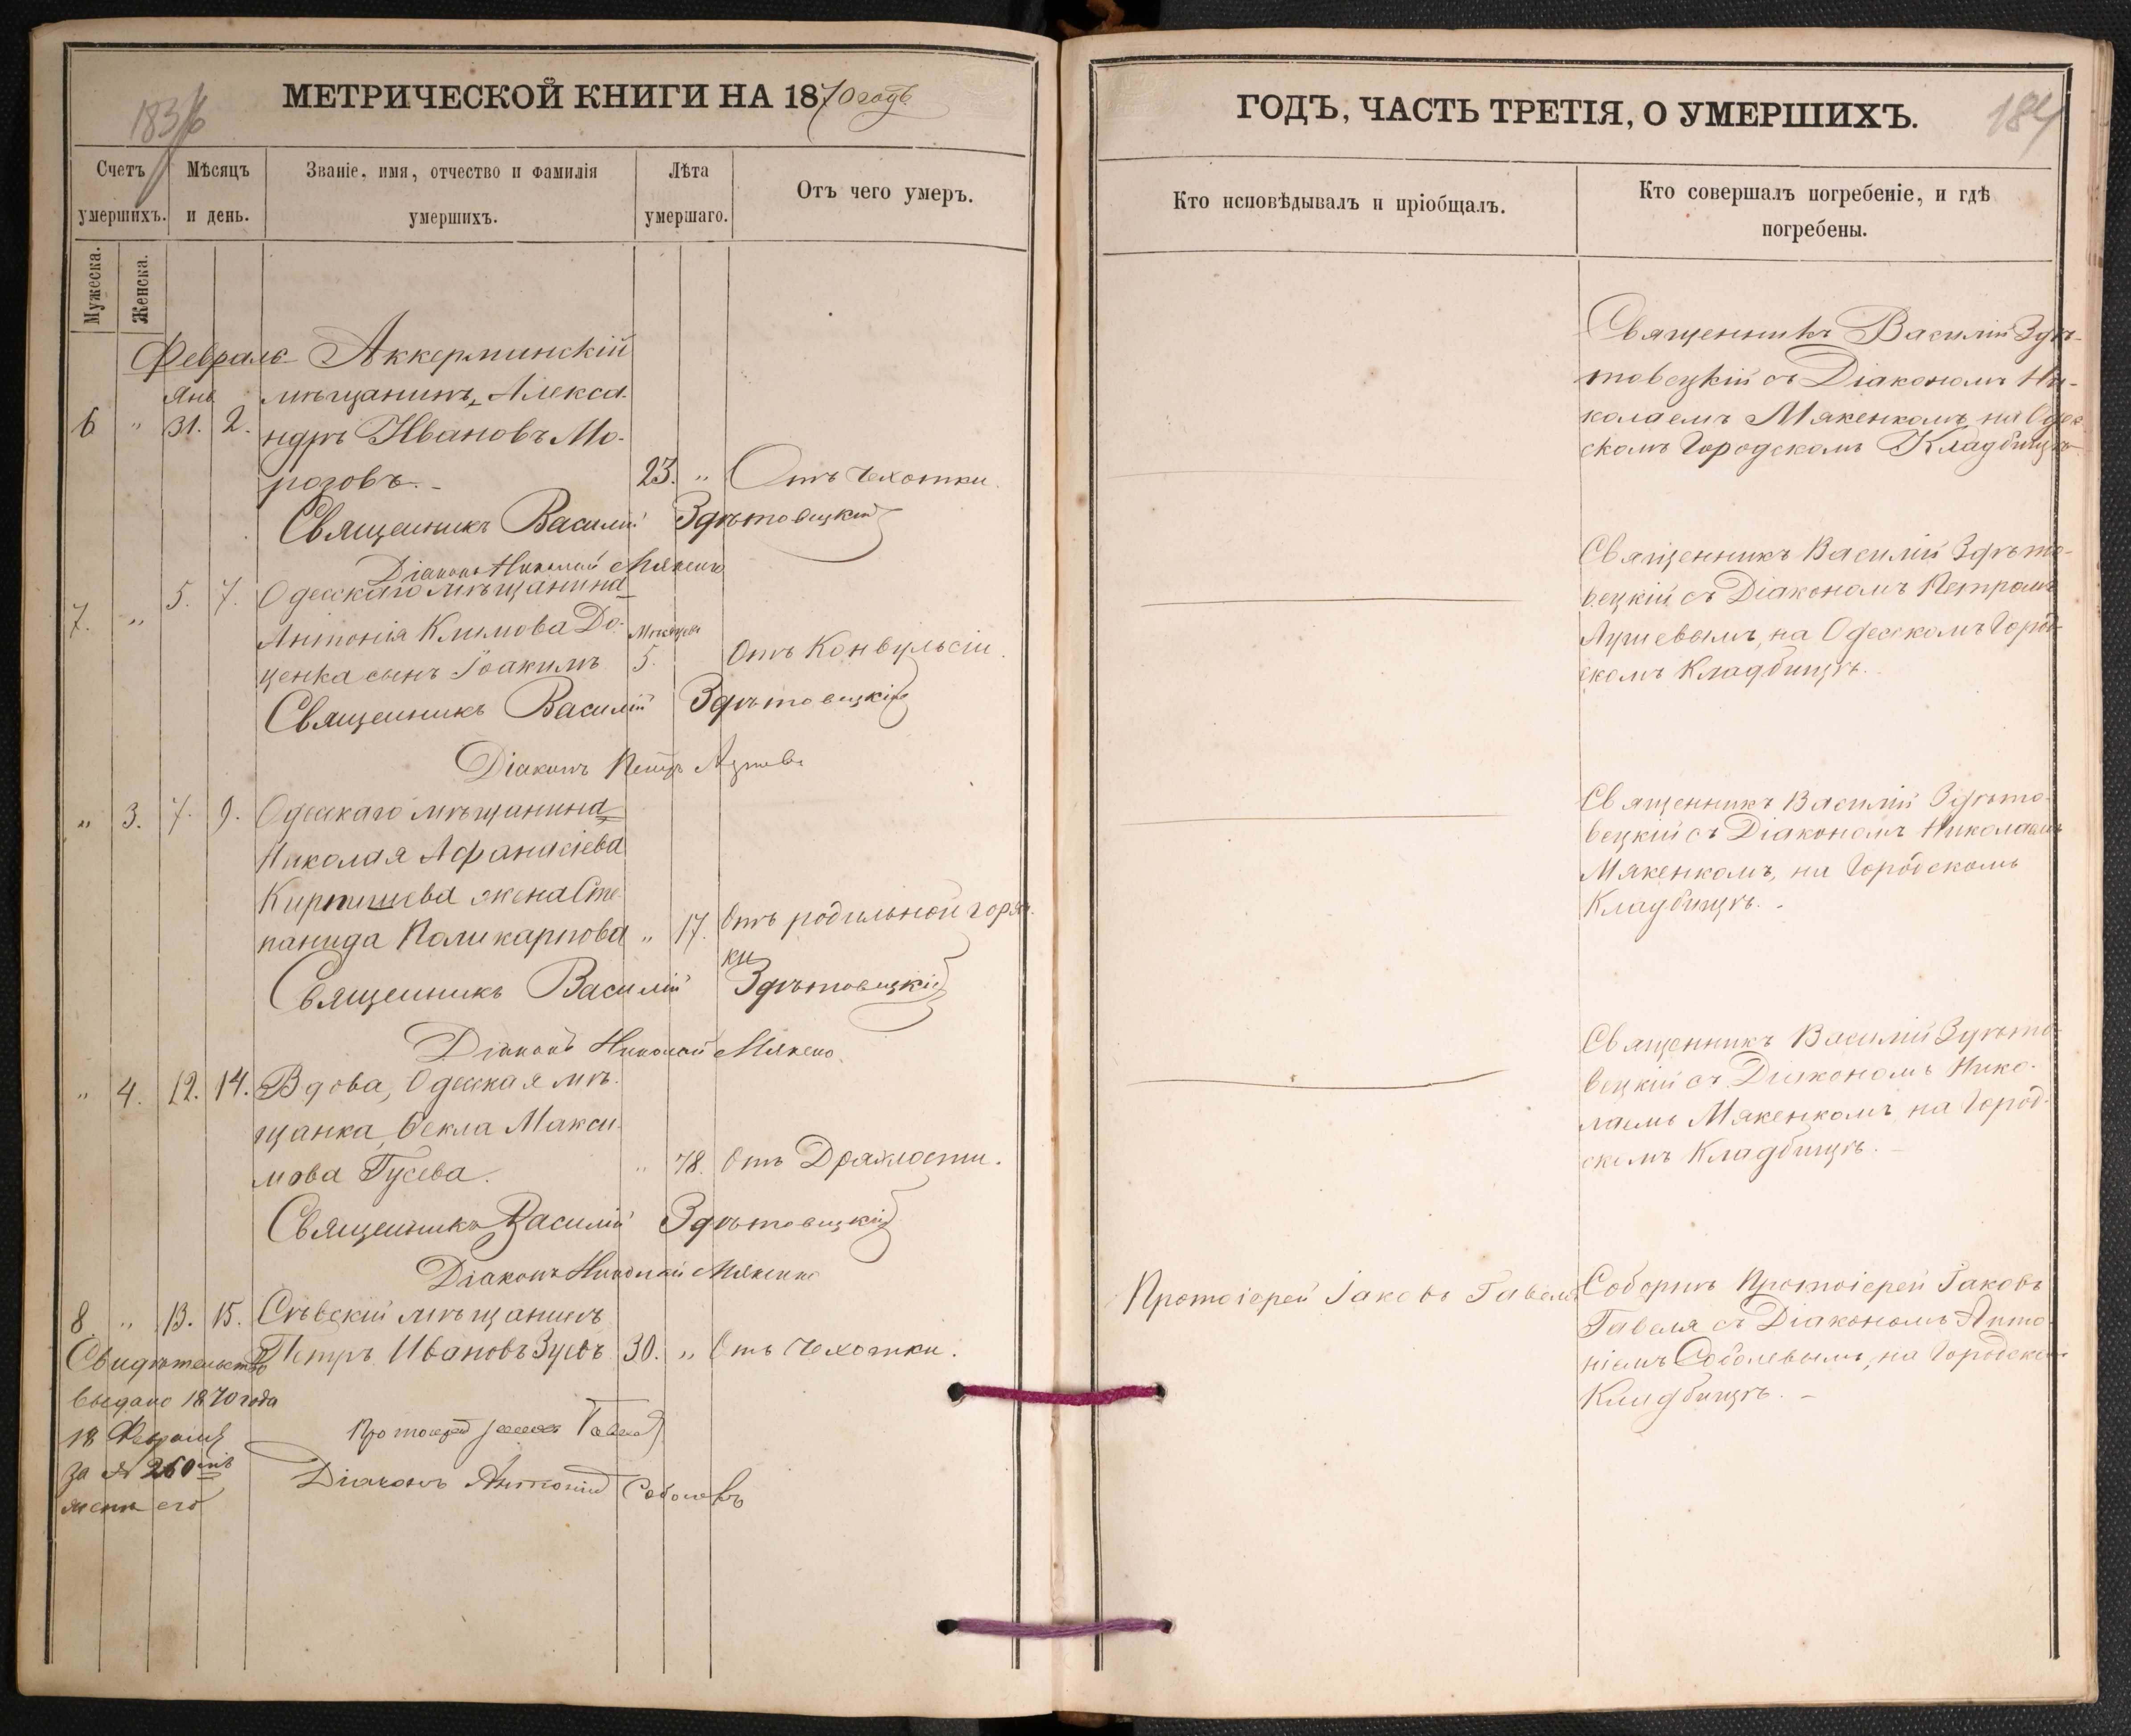 МЕТРИЧЕСКОЙ КНИГИ НА 1870 годъ
Счетъ умершихъ.
Мѣсяцъ и день.
Званіе, имя, отчество и фамилія умершихъ.
Лѣта умершаго.
Отъ чего умеръ.
Мужеска.
Женска.
Февраль Аккерминскій
Янв. мѣщанинъ, Алекса-
6 " 31. 2. ндръ Ивановъ Мо-
розовъ. 23. " Отъ Чехотки.
Священникъ Василій Здѣтовецкій
Діаконъ Николай Мякенко
7. " 5. 7. Одесскаго мѣщанина
Антонія Климова До- Мѣсяцевъ
ценка сынъ Іоакимъ 5. Отъ Конвульсіи.
Священникъ Василій Здѣтовецкій
Діаконъ Петръ
" 3. 7. 9. Одесскаго мѣщанина
Николая Афанасіева
жена Сте-
панида Поликарпова " 17. Отъ родильной горяч-
ки
Священникъ Василій Здѣтовецкій
Діаконъ Николай Мякенко
" 4. 12. 14. Вдова, Одесская мѣ-
щанка, Ѳекла Макси-
мова Гусева. " 78. Отъ Дряхлости.
Священникъ Василій Здѣтовецкій
Діаконъ Николай Мякенко
8 " 13. 15. Сѣвскій мѣщанинъ
Петръ Ивановъ Зуевъ 30. " Отъ Чехотки.
Свидѣтельство
выдано 1870 года
18 Февраля
за № 260мъ
женѣ его
Протоіерей Іаковъ Гавеля
Діаконъ Антоній Соболевъ
ГОДЪ, ЧАСТЬ ТРЕТІЯ, О УМЕРШИХЪ.
184
Кто исповѣдывалъ и пріобщалъ.
Кто совершалъ погребеніе, и гдѣ погребены.
Священникъ Василій Здѣ-
товецкій съ Діакономъ Ни-
колаемъ Мякенкомъ, на Одес-
скомъ Городскомъ Кладбищѣ
Священникъ Василій Здѣто-
вецкій съ Діакономъ Петромъ
на Одесскомъ Город-
скомъ Кладбищѣ.
Священникъ Василій Здѣто-
вецкій съ Діакономъ Николаемъ
Мякенкомъ, на Городскомъ
Кладбищѣ.
Священникъ Василій Здѣто-
вецкій съ Діакономъ Нико-
лаемъ Мякенкомъ на Город-
скомъ Кладбищѣ.
Протоіерей Іаковъ Гавеля
Соборнѣ Протоіерей Іаковъ
Гавеля съ Діакономъ Анто-
ніемъ Соболевымъ, на Городскомъ
Кладбищѣ.